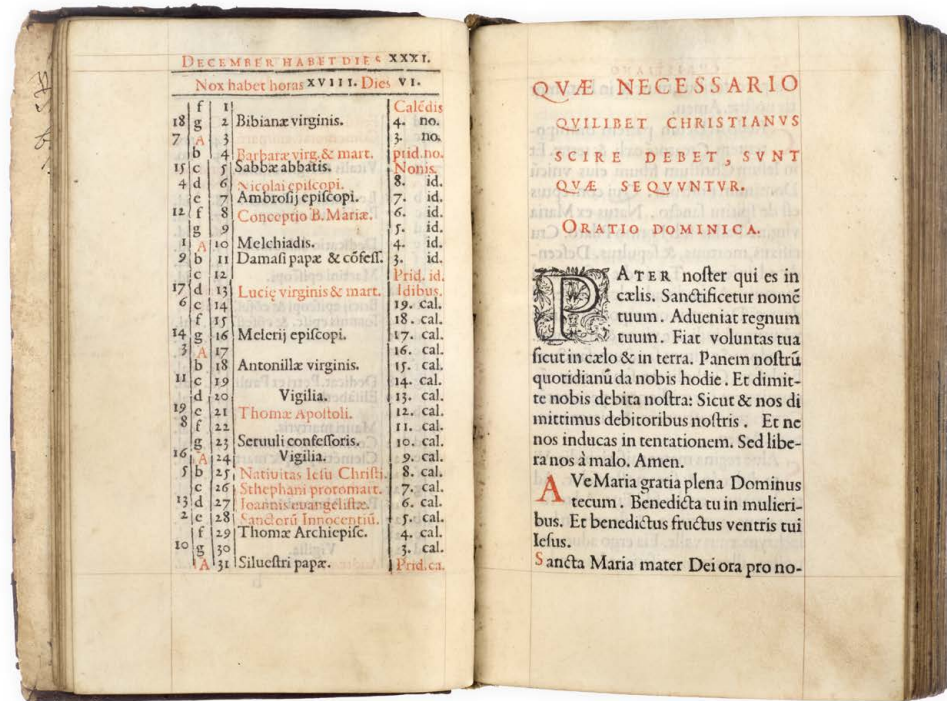 DECEMBER HABET DIES XXXI.
Nox habet horas XVIII. Dies VI.
f 1 Calẽdis
18 g 2 Bibianæ virginis. 4. no.
7 A 3 3. no.
b 4 Barbaræ virg. & mart. prid.no.
15 c 5 Sabbæ abbatis. Nonis.
4 d 6 Nicolai epiſcopi. 8. id.
e 7 Ambroſij epiſcopi. 7. id.
12 f 8 Conceptio B. Mariæ. 6. id.
g 9 5. id.
1 A 10 Melchiadis. 4. id.
9 b 11 Damaſi papæ & cõfeſſ. 3. id.
c 12 Prid. id.
17 d 13 Lucię virginis & mart. Idibus.
6 e 14 19. cal.
f 15 18. cal.
14 g 16 Melerij epiſcopi. 17. cal.
3 A 17 16. cal.
b 18 Antonillæ virginis. 15. cal.
11 c 19 14. cal.
d 20 Vigilia. 13. cal.
19 e 21 Thomæ Apoſtoli. 12. cal.
8 f 22 11. cal.
g 23 Seruuli confeſſoris. 10. cal.
16 A 24 Vigilia. 9. cal.
5 b 25 Natiuitas Ieſu Chriſti. 8. cal.
c 26 Sthephani protomart. 7. cal.
13 d 27 Ioannis euangeliſtæ. 6. cal.
2 e 28 Sanctorũ Innocentiũ. 5. cal.
f 29 Thomæ Archiepiſc. 4. cal.
10 g 30 3. cal.
A 31 Silueſtri papæ. Prid.ca.
QVÆ NECESSARIO
QVILIBET CHRISTIANVS
SCIRE DEBET, SVNT
QVÆ SEQVVNTVR.
ORATIO DOMINICA.
PATER noſter qui es in
cælis. Sanctificetur nomẽ
tuum. Adueniat regnum
tuum. Fiat voluntas tua
ſicut in cælo & in terra. Panem noſtrũ
quotidianũ da nobis hodie. Et dimit-
te nobis debita noſtra: Sicut & nos di
mittimus debitoribus noſtris. Et ne
nos inducas in tentationem. Sed libe-
ra nos à malo. Amen.
AVe Maria gratia plena Dominus
tecum. Benedicta tu in mulieri-
bus. Et benedictus fructus ventris tui
Ieſus.
Sancta Maria mater Dei ora pro no-